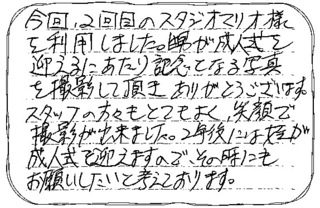 今回、2回目のスタジオマリオ様
を利用しました。甥が成人式を
迎えるにあたり記念となる写真
を撮影して頂きありがとうございます。
スタッフの方々もとてもよく、笑顔で
撮影が出来ました。2年後には姪が
成人式を迎えますので、その時にも
お願いしたいと考えております。